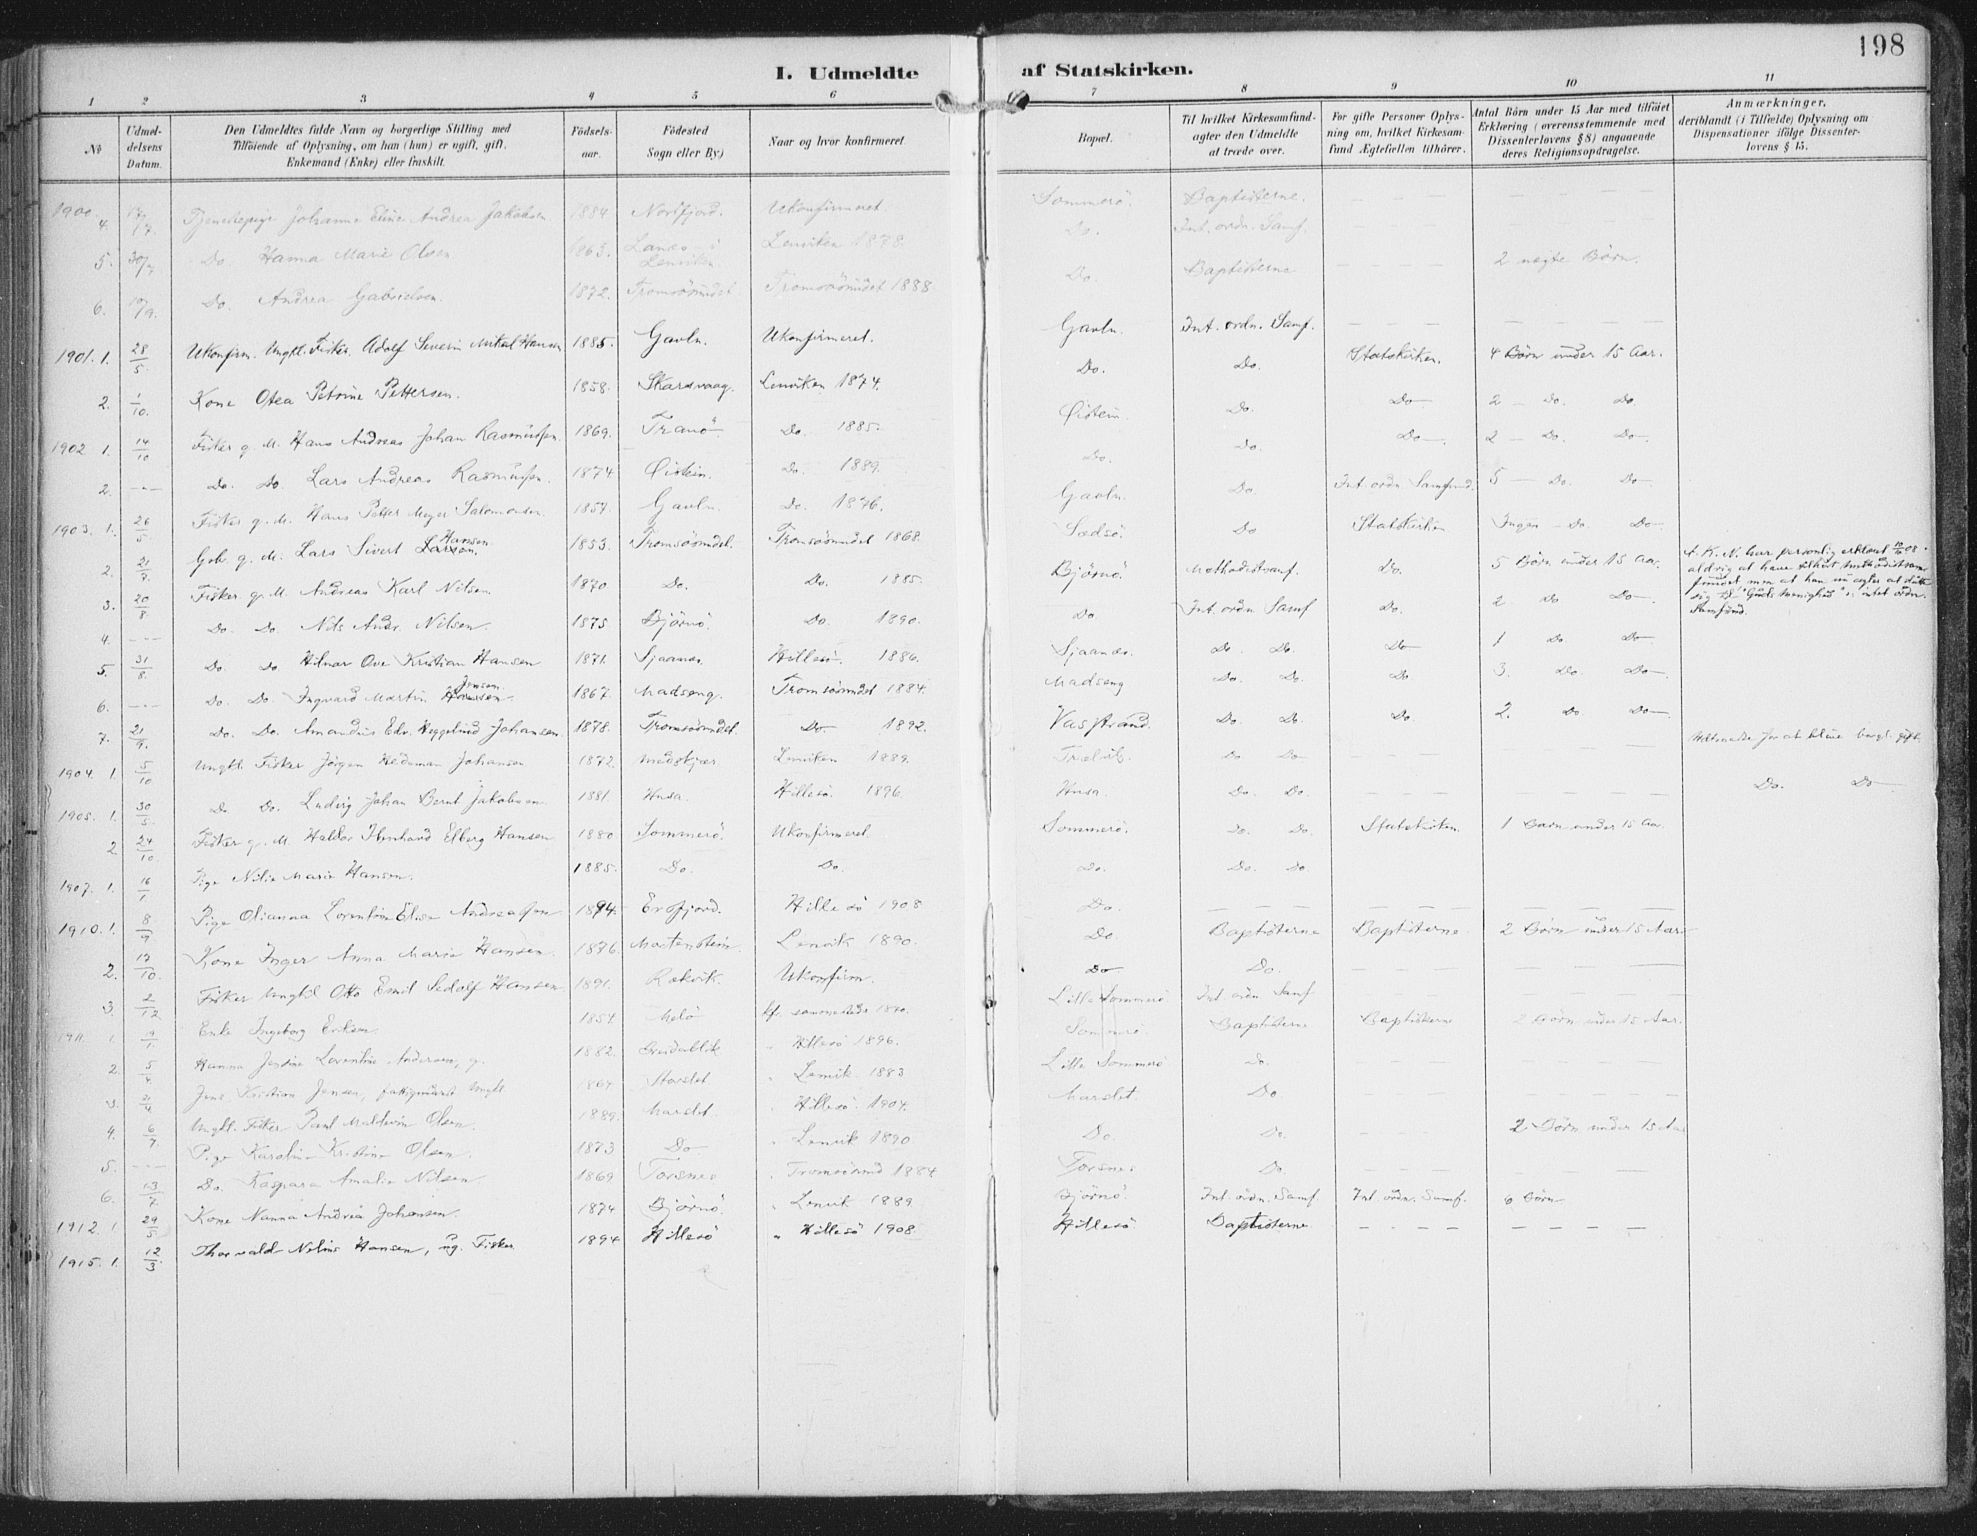 198
I. Udmeldte af Statskirken.
1 2 3 4 5 6 7 8 9 10 11
№ Udmeldelsens Datum. Den Udmeldtes fulde Navn og borgerlige Stilling med Tilföiende af Oplysning, om han (hun) er ugift, gift, Enkemand (Enke) eller fraskilt. Födselsaar. Födested Sogn eller By) Naar og hvor konfirmeret Bopæl. Til hvilket Kirkesamfund agter den Udmeldte at træde over. For gifte Personer Oplysning om, hvilket Kirkesamfund Ægtefællen tilhörer. Antal Börn under 15 Aar med tilföiet Erklæring (overensstemmende med Dissenterlovens § 8) angaaende deres Religionsopdragelse. Anmærkninger, deriblandt (i Tilfælde) Oplysning om Dispensationer ifölge Dissenterlovens § 15.
1900. 4. 17/7. Tjenestepige Johanna Eline Andrea Jakobsen 1884 Nordfjord. Ukonfirmeret Sommerö. Baptisterne. — — — — — —
5. 30/7 Do. Hanna Marie Olsen 1863. Lanes i Lenviken Lenviken 1878. Do. Int. ordn. Samf. — — — — — —
6. 10/9. Do. Andrea Gabrielsen. 1872. Tromsösundet Tromsösundet 1888. Do. Baptisterne — — — 2 uægte Börn.
1901. 1. 28/5. Ukonfirm. Ungkl. Fisker Adolf Severin Mikal Hansen 1885. Gavln. Ukonfirmeret. Gavln. Int. ordn. Samf. — — — — — —
2. 1/10. Kone Otea Petrine Pettersen. 1858. Skarsvaag. Lenviken 1874. Do. Do. Statskirken. 4 Börn under 15 Aar.
1902 1. 14/10 Fisker g. M. Hans Andreas Johan Rasmussen. 1869. Tranö. Do. 1885. Öistein. Do. Do 2 — Do. Do
2. — Do. Do. Lars Andreas Rasmussen. 1874 Öistein. Do. 1889. Do. Do. Do. 2 — Do. Do.
1903. 1. 26/5 Fisker g. M. Hans Petter Meyer Salomonsen 1857. Gavln. Do. 1876. Gavln. Do Int. ordn. Samfund. 5 — Do. Do
2. 21/7 Gbr. g. M. Lars Sivert Larsen. Hansen 1853. Tromsösundet. Tromsösundet 1868. Sadsö. Do Statskirken Ingen — Do. Do
3. 20/8 Fisker g. M. Andreas Karl Nilsen. 1870 Do. Do. 1885. Björnö. Methodistsamf. Do. 5 Börn under 15 Aar. A. K. N. har personlig erklæret 10/10 08. aldrig at have tilhört Methodistsamfundet men at han nu agter at slutte sig til "Guds Menighed" o: intet ordn. Samfund.
4. — Do. Do. Nils Andr. Nilsen. 1875 Björnö. Do. 1890. Do Int. ordn. Samf Do. 2 Do Do
5. 31/8 Do. Do Hilmar Ove Kristian Hansen 1871. Sjaanes. Hillesö. 1886. Sjaanes. Do. Do. Do 1 Do Do
6. — Do. Do. Ingvard Martin Hansen. Jensen. 1867. Madseng. Tromsösundet 1884. Madseng Do. Do. Do 3. Do. Do
7. 21/9. Do. Do. Amandus Edv. Heggelund Johansen. 1878. Tromsösundet. Do 1892. Vasstrand. Do. Do. Do. 2. Do Do
1904. 1. 5/10 Ungkl. Fisker Jörgen Hedeman Johansen 1872. Lenviken 1889. Do Do — — — — — Udtraadte for at blive borgl. gift.
1905. 1. 30/5. Do Do. Ludvig Johan Bernt Jakobsen 1881. Husa. Hillesö. 1896. Husa Do. Do. — — — — — Do. Do
2. 24/10. Fisker g. M. Halvor Elberg Hansen 1880. Sommerö. Ukonfirmeret. Sommerö. Do. Do. Statskirken. 1 Barn under 15 Aar.
1907. 1. 16/1 Pige Nilie Marie Hansen. 1885. Do. Do. Do. Do. Do
1910. 1. 8/9. Pige Olianna Lorentine Elise Andreassen 1894. Ersfjord. Hillesö 1908 Do. — — — — — —
2. 17/10. Kone Inger Anna Marie Hansen. 1876. Mortenstein. Lenvik 1890. Do. Baptisterne Baptisterne 2 Börn under 15 Aar
3. 2/12 Fisker Ungkl Otto Emil Sedolf Hansen. 1891. Rækvik. Ukonfirm. Do Do — — — — —
1911. 1 9/1. Enke Ingeborg Eriksen. 1854 Melö kf. sammesteds 1870. Lille Sommerö Int. ordn Samf — — — — —
2. 5/4 Hanna Jensine Lorentine Andersen, g. 1882. Hillesö 1896. Sommerö. Baptisterne Baptisterne 2 Börn under 15 Aar.
3. 21/4 Jens Kristian Jensen, Ungkl 1864 Storslet Lenvik 1883 Lille Sommerö Do. — — — —
4. 6/7. Ungkl. Fisker Paul Maldvin Olsen. 1889. Marslet. Hillesö 1904. Marslet. Do — — — — —
5. — Pige Karoline Kristine Olsen. 1873 Do " Lenvik 1890 Do. Do. — — — 2 Börn under 15 Aar
6. 13/7. Do. Kaspara Amalie Nilsen 1869 Torsnes " Tromsösund 1884 Torsnes Do. — — — — — —
1912. 1 29/5 Kone Nanna Andrea Johansen. 1874 Björnö. " Lenvik 1889. Björnö. Int. ordn. Samf. Int. ordn. Samf. 6 Börn
1915. 1. 12/3. Thorvald Nilius Hansen, ug. Fisker 1894 Hillesö " Hillesö 1908. Hillesö Baptisterne — — — — — —